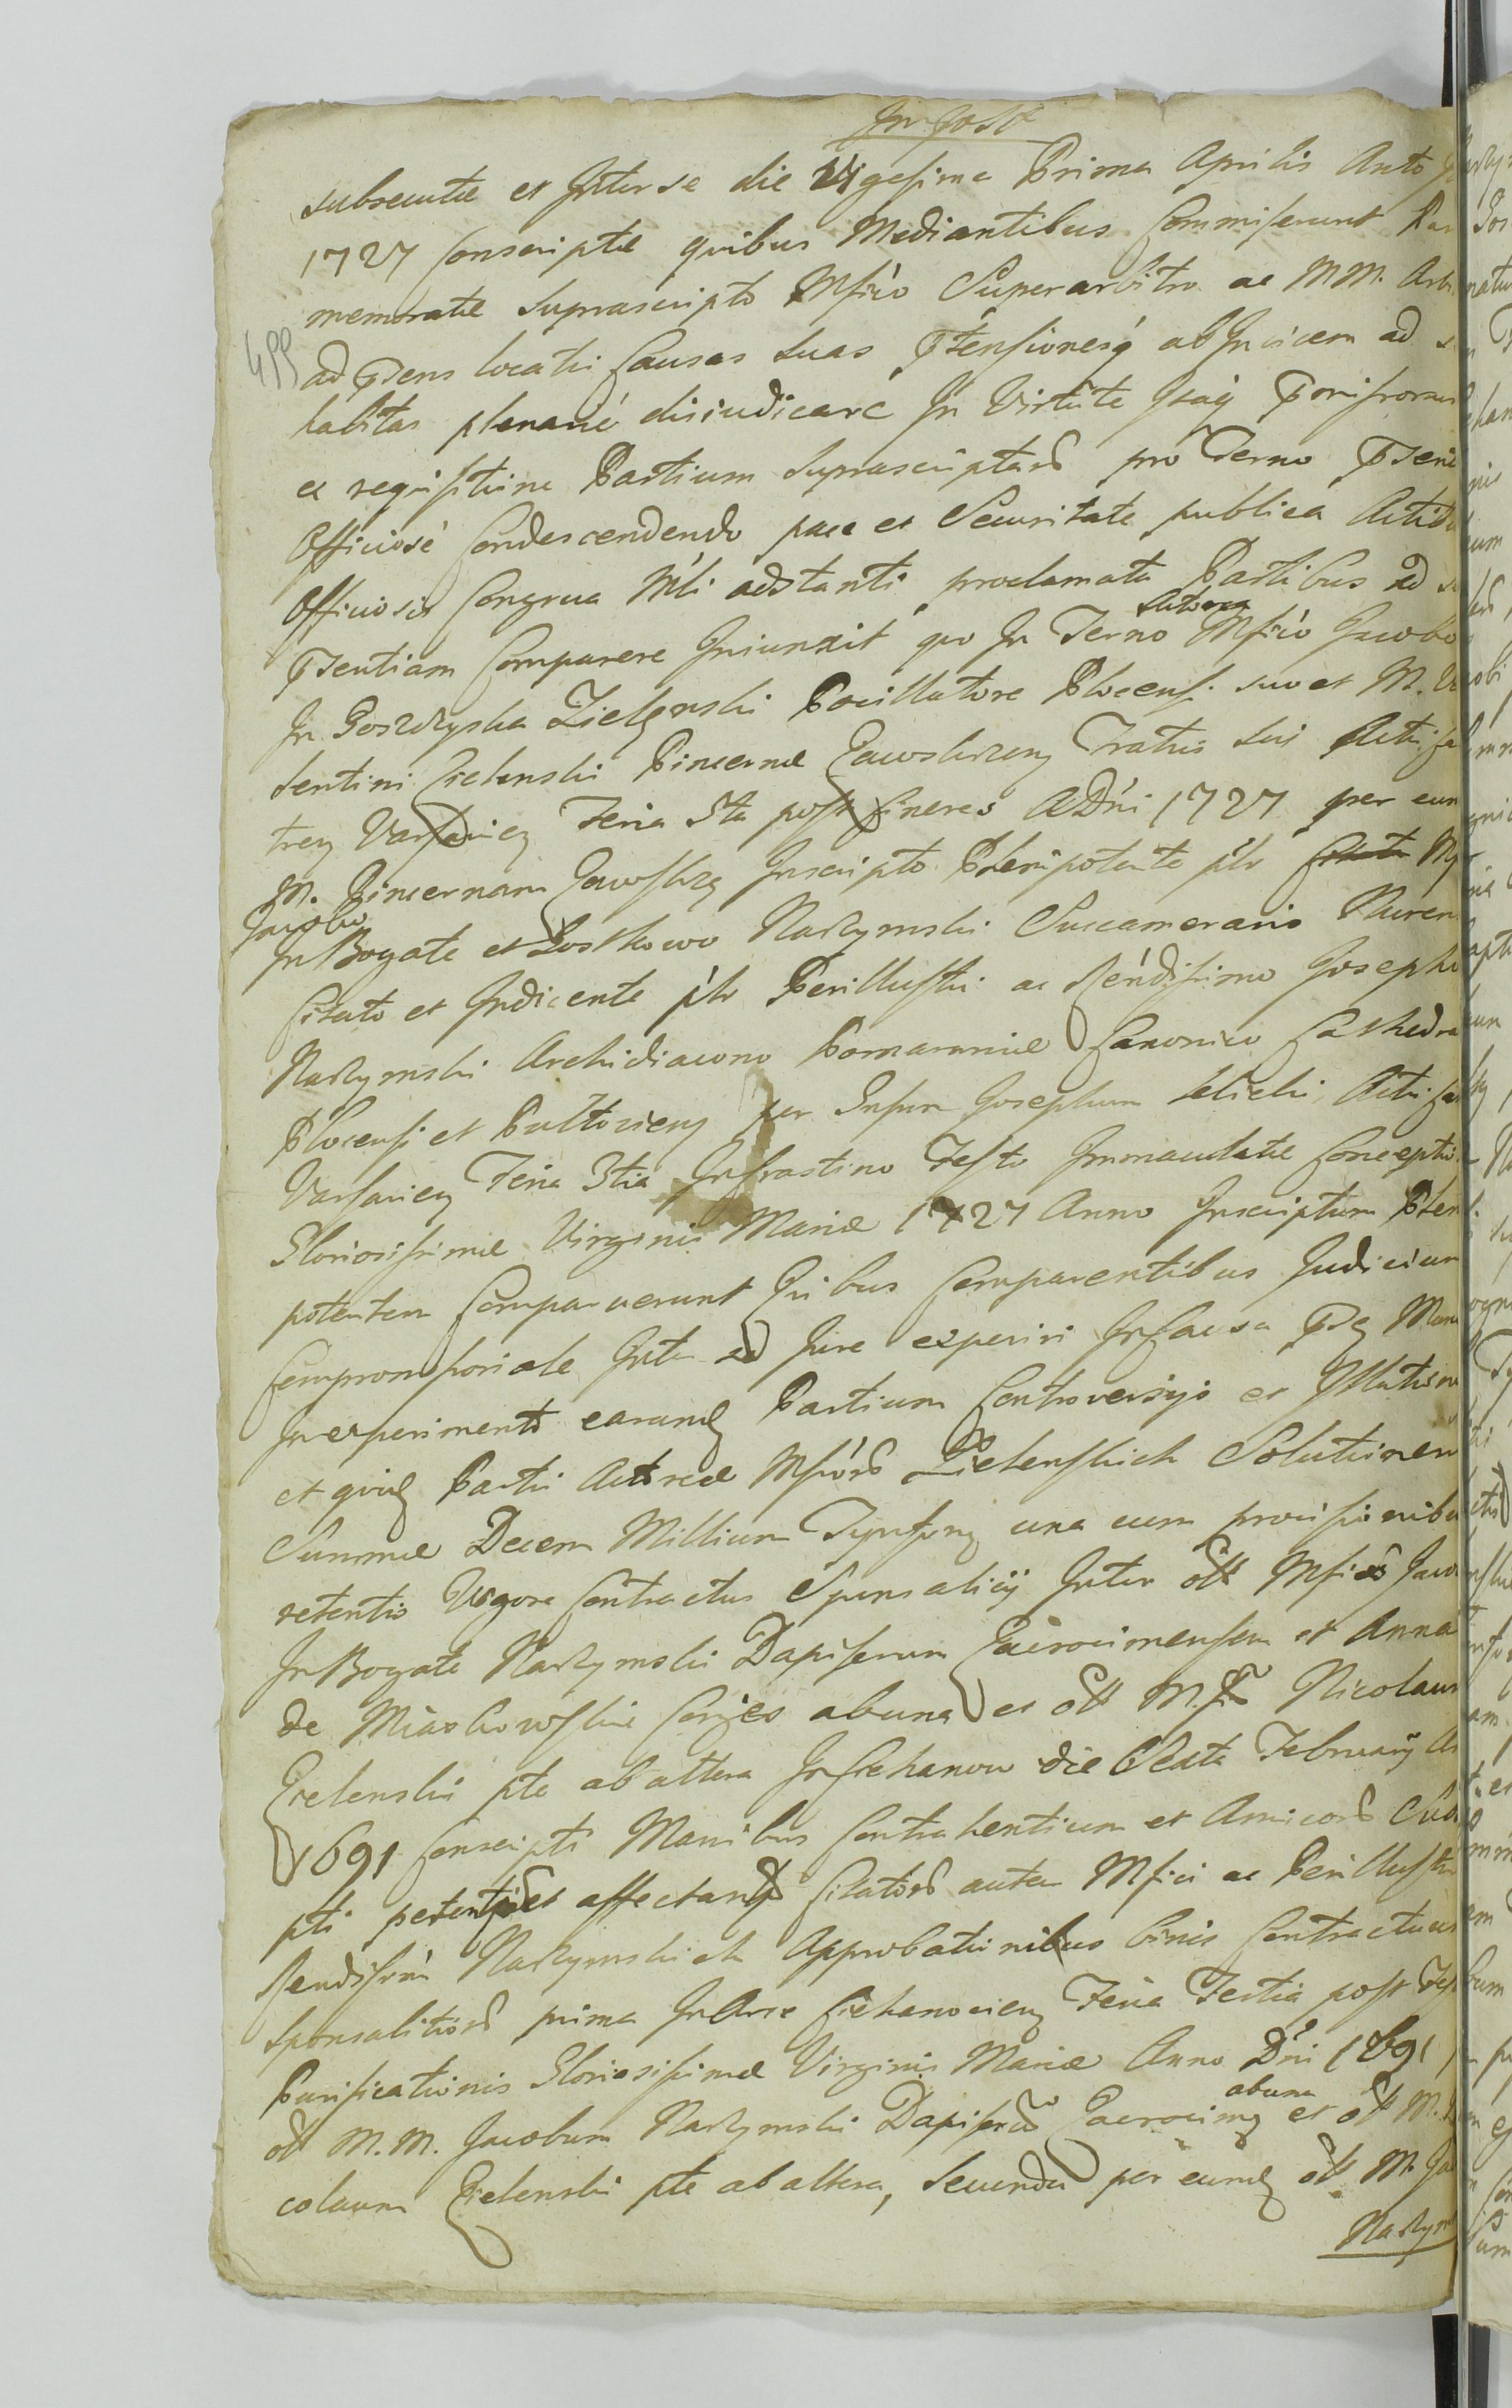 subsecutæ et Inter se die Vigesima Prima Aprilis Anto
1727 Conscriptæ quibus Mediantibus Commiserunt Par
memoratæ Suprascripto Mfico Superarbitro ac MM. Arbi
499
ad psens locati Causas suas ptensionesq ab Invicem ad
habitas plenarie disiudicare In Virtute Itaq
ex requisitione Partium Suprascriptaru pro Termo pseni
Officiose Condescendendo pace et Securitate publica Actib
Officiosis Congrua Mli adstanti proclamata Partibus ad s
psentiam Comparere Iniunxit quo In Termo Actorea Mfico Jacobo
In Goszczyska Zielenski Pocillatore Plocensi suo et M. Va
lentini Zielenski Pincernæ Zawskrzen Fratris sui Actis ca
tren Varsavien Feria 5ta post Cineres A Dni 1727 per eun
M. Pincernam Zawskrzen Inscripto Plenipotente plr M
Jacobo
In Bogate et Loskowo Narzymski Succamerario Nuren
Citato et Indicente plr Perillustri ac Rendissimo Josepho
Narzymski Archidiacono Pomeraniæ Canonico Cathedra
Plocensi et Pultovien per Gnsum Josephum Actis cas
Varsavien Feria 3tia In Crastino Festo Immaculatæ Conceptio
Gloriosissimæ Virginis Mariæ 1727 Anno Inscriptum Plen
potentem Comparuerunt Quibus Comparentibus Judicium
Compromissoriale Inter ad Jure experiri In Causa
In experimento earund Partium Controversijs et Illationi
et quid Parti Actoreæ Mficoru Zielenskich Solutionem
Summæ Decem Millium Tynfon una cum provisionibu
retentis Vigore Contractus Sponsalicij Inter olt Mficos Jaco
In Bogate Narzymski Dapiferum Zacrocimensem et Anna
de Miaskowskie Conjges ab una et olt M. Nicolaum
Zielenski pte ab altera In Ciehanow die Sexta February A
1691 Conscripti Manibus Contrahentium et Amicoru Subs
pti petentis et affectan Citatoru autem Mfici ac Perillustri
Rendissimi Narzymskich Approbationibus binis Contractuum
Sponsalitioru prima In Arce Ciehanovien Feria Tertia post Fest
Purificationis Gloriosissimæ Virginis Mariæ Anno Dni 1691
olt M.M. Jacobum Narzymski Dapiferu Zacrocimen ab una et olt M. N
colaum Zielenski pte ab altera, Secunda per eund olt M. Jac
Narzym